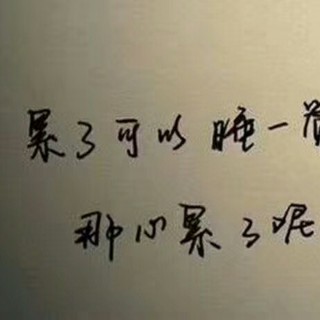 累了可以睡一觉
那心累了呢